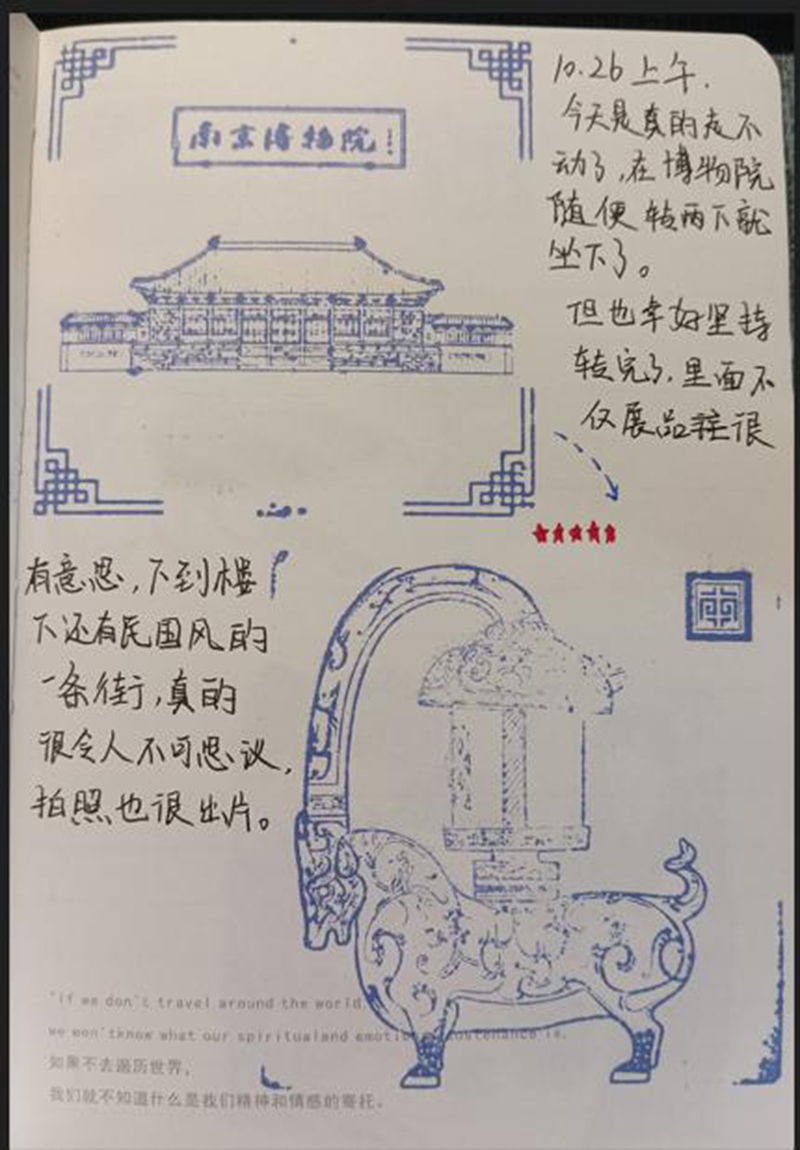 南京博物院
10.26上午.
今天是真的走不
动了,在博物院
随便转两下就
坐下了。
但也幸好坚持
转完了.里面不
仅展品很
有意思,下到楼
下还有民国风的
一条街,真的
很令人不可思议,
拍照也很出片。
"if we don't travel around the world,
we won'tknow what our spiritualand emotional sustenance is.
如果不去遍历世界,
我们就不知道什么是我们精神和情感的寄托。